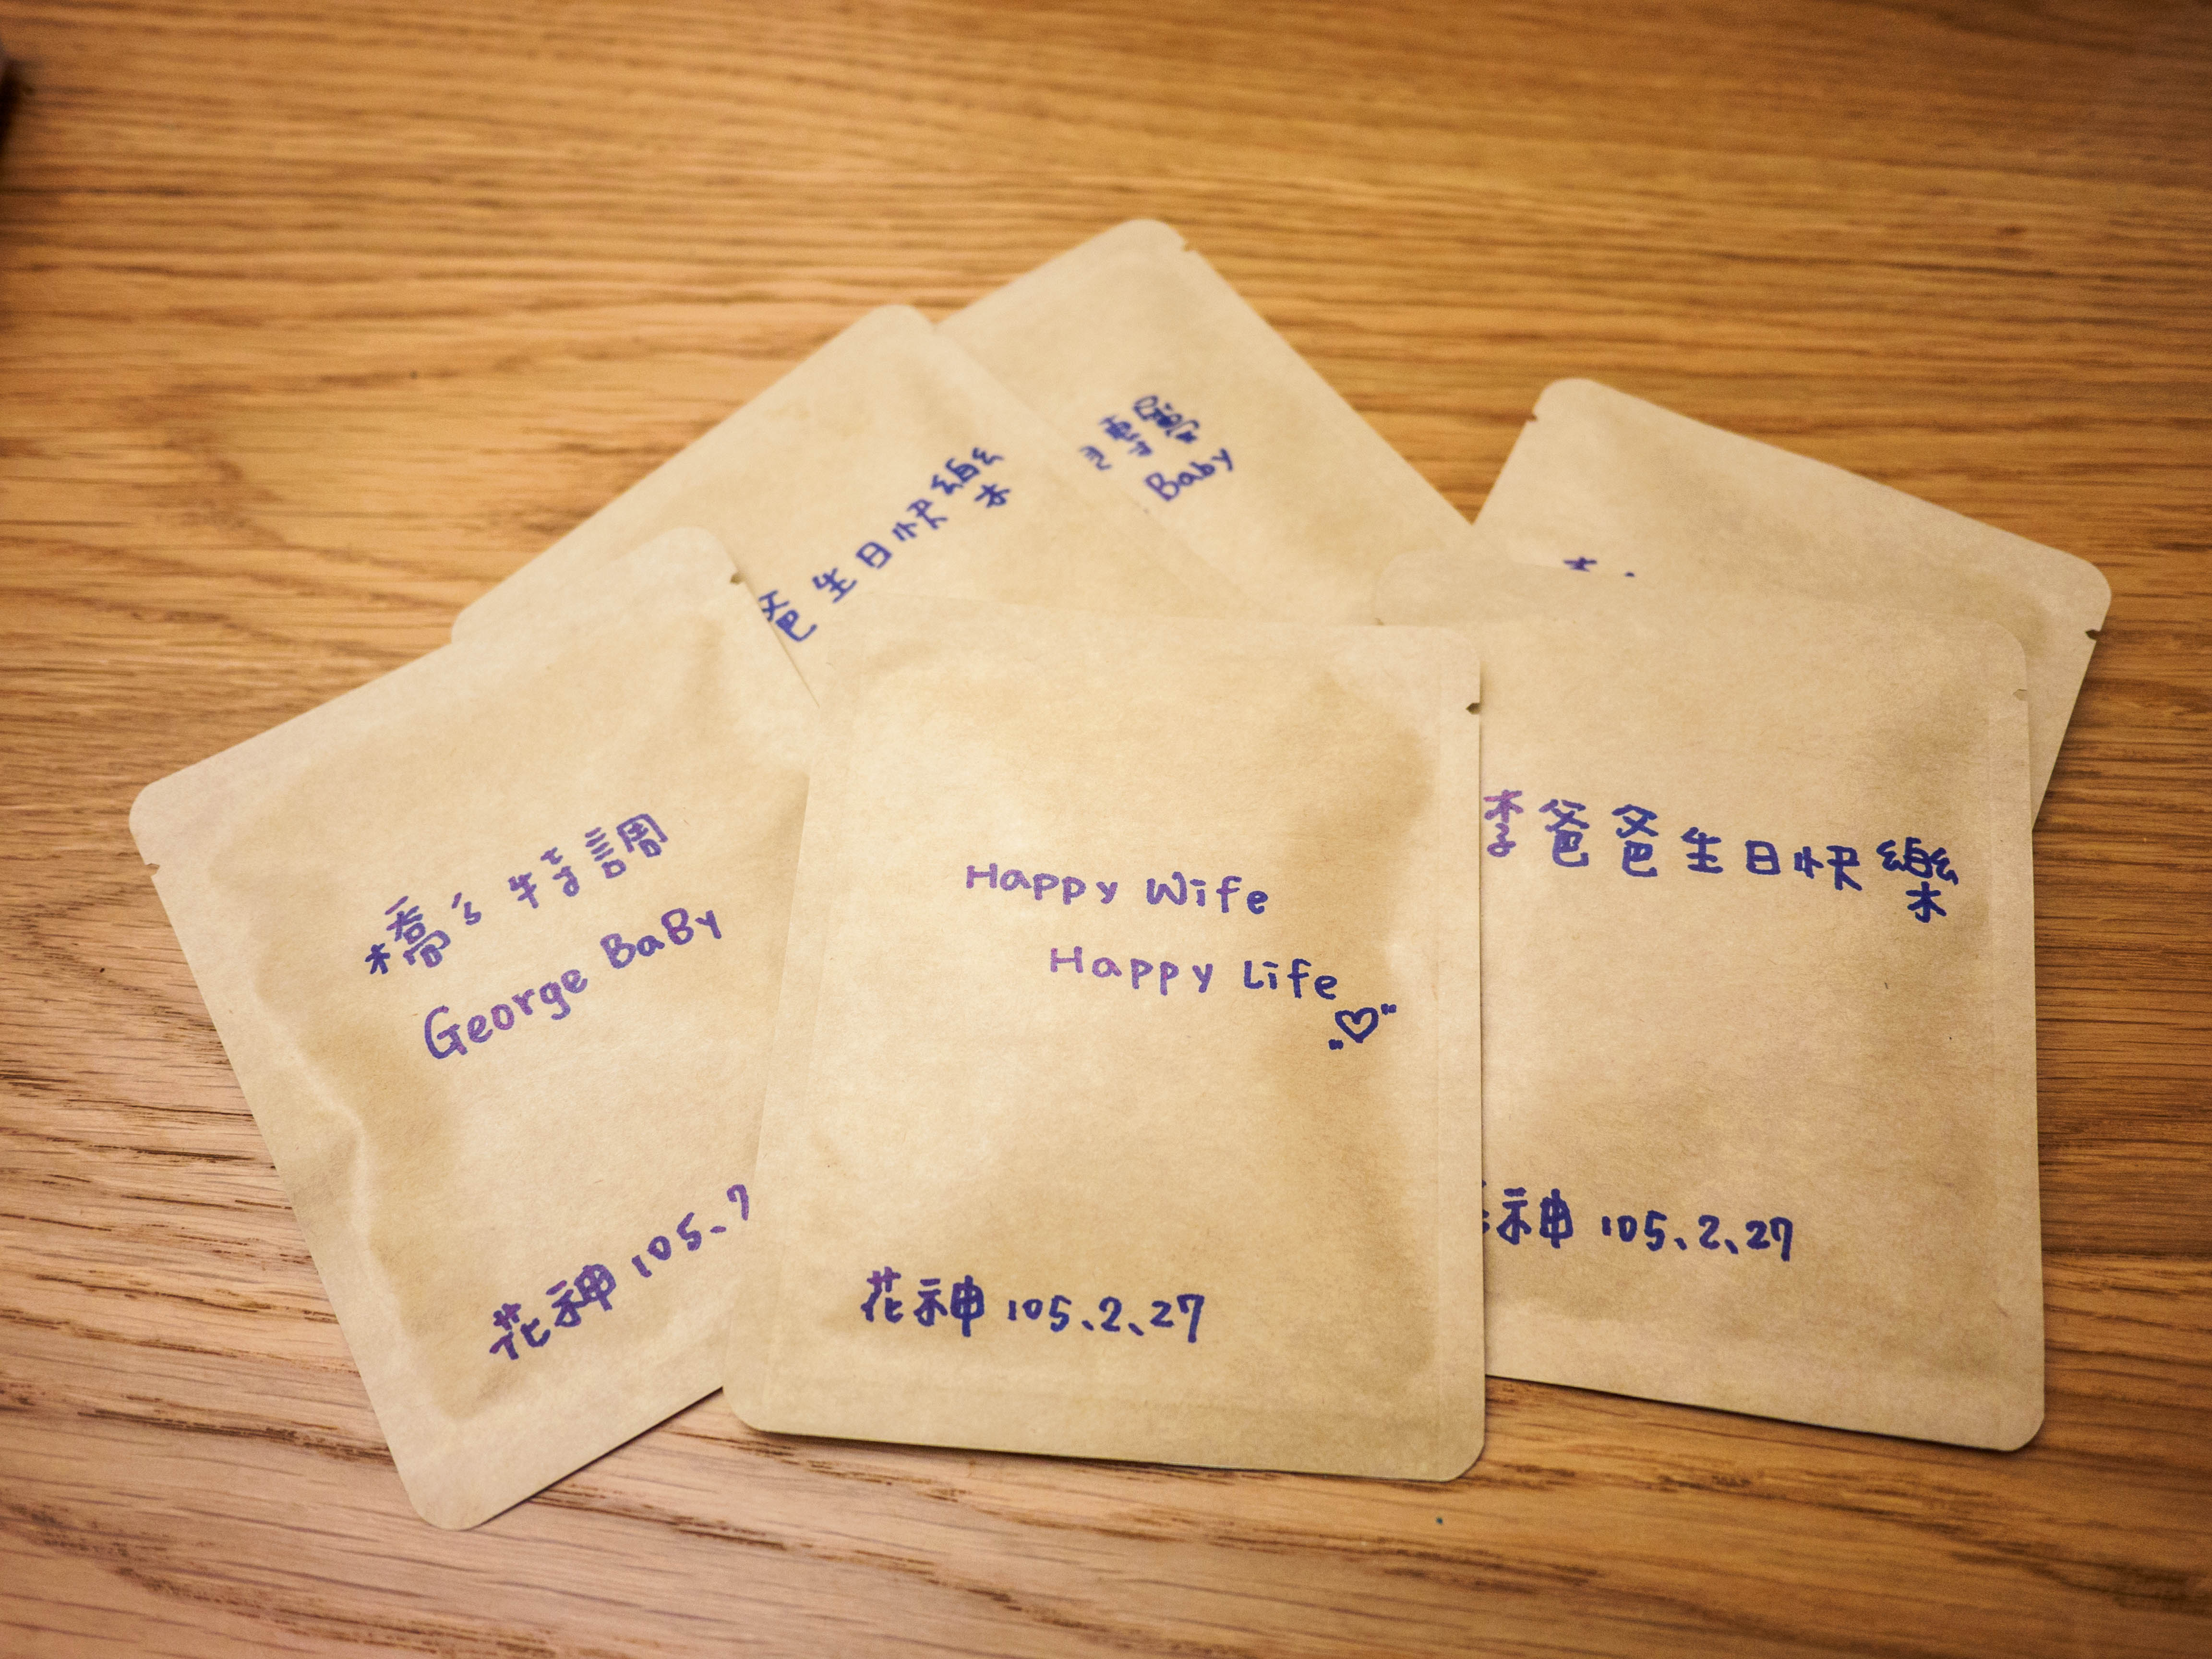 爸生日快樂
Baby
橋ㄋ特調
George BaBy
花神 105、
Happy Wife
Happy Life
花神 105、2、27
李爸爸生日快樂
神 105、2、27